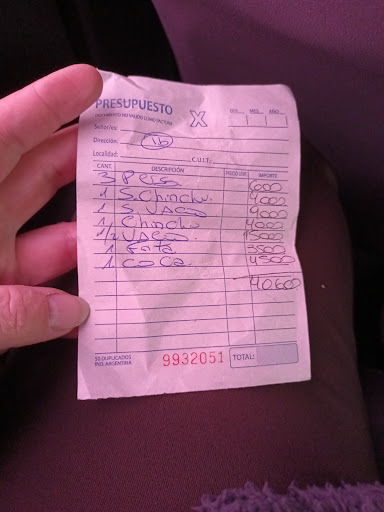 PRESUPUESTO
DOCUMENTO NO VALIDO COMO FACTURA
X
DIA MES AÑO
Señor/es:
Dirección: 16
Localidad: C.U.I.T.:
CANT. DESCRIPCIÓN PRECIO UNIT. IMPORTE
3 600
1 S. Chinchu. 4000
1 S. VACO 9000
1 Chinchu 4000
1/2 VACO. 15000
1 3500
1 coca 4500
40.600
50 DUPLICADOS
IND. ARGENTINA
9932051
TOTAL: